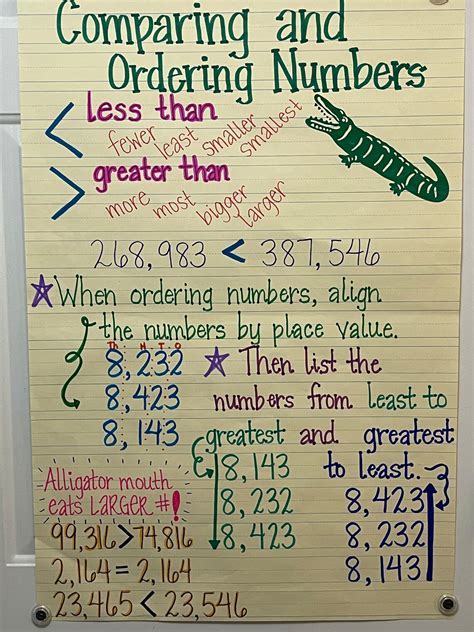 Comparing and
Ordering Numbers
< less than
fewer least smaller smallest
> greater than
more most bigger larger
268,983 < 387,546
When ordering numbers, align
the numbers by place value.
Th H T O
8,232
8,423
8,143
Then list the
numbers from least to
greatest and greatest
to least.
8,143
8,232
8,423
8,423
8,232
8,143
Alligator mouth
eats LARGER #!
99,316 > 74,816
2,164 = 2,164
23,465 < 23,546